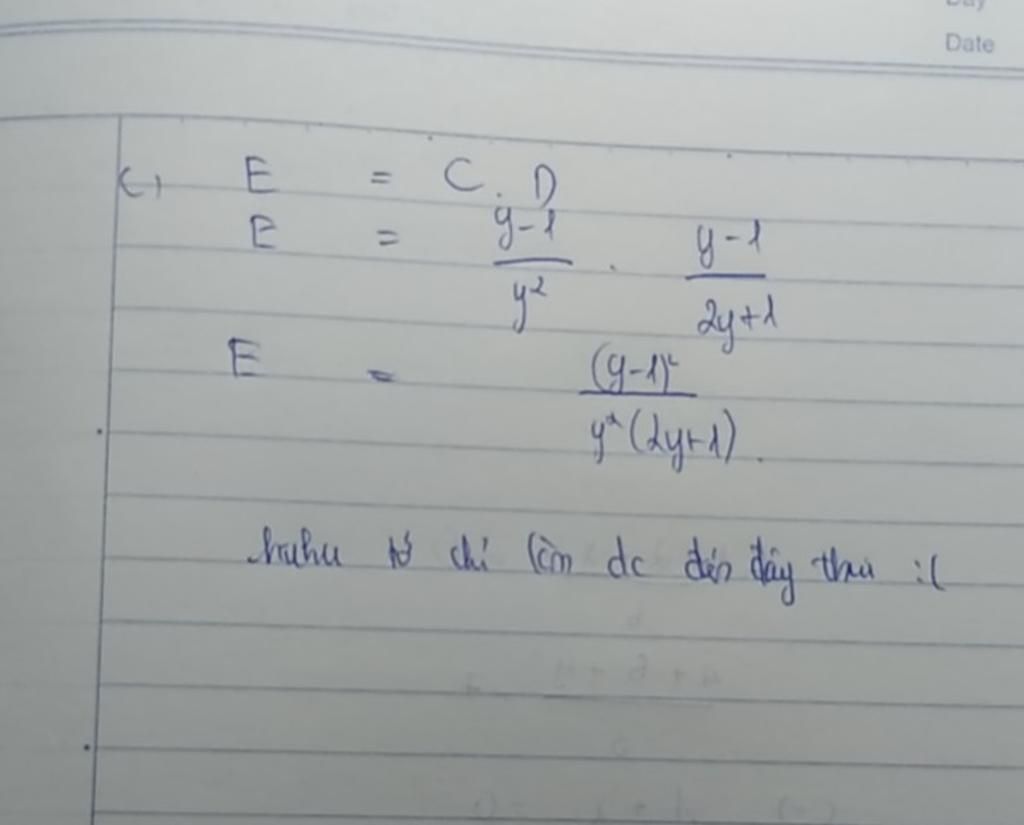 Day
Date
c) E = C. D
E = \frac{y-1}{y^2} . \frac{y-1}{2y+1}
E = \frac{(y-1)^2}{y^2(2y+1)}.
huhu tớ chỉ làm dc đến đây thui :(